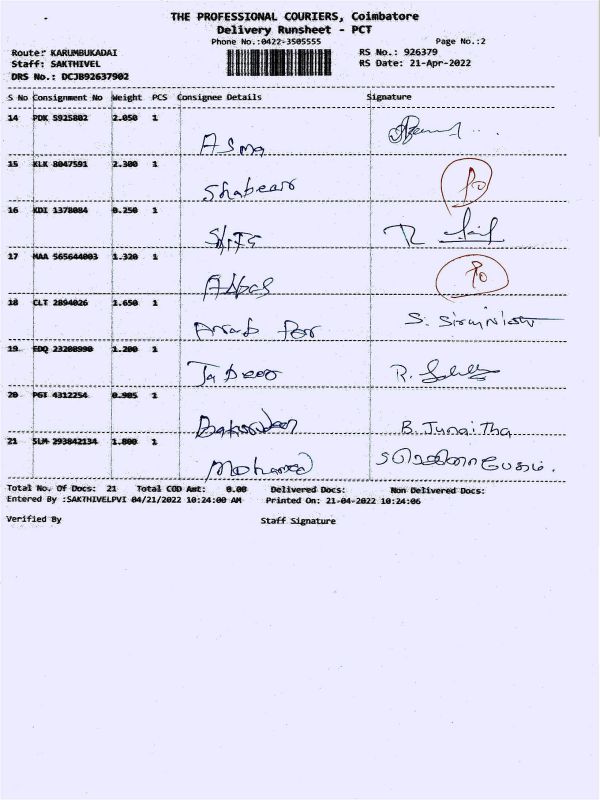 THE PROFESSIONAL COURIERS, Coimbatore
Delivery Runsheet - PCT
Phone No.:0422-3505555
Page No.:2
Route: KARUMBUKADAI
RS No.: 926379
Staff: SAKTHIVEL
RS Date: 21-Apr-2022
DRS No.: DCJB92637902
S No Consignment No Weight PCS Consignee Details Signature
14 PDK 5925802 2.050 1
Asma
15 KLK 8047591 2.300 1
Shabeer
16 KDI 1378084 0.250 1
17 MAA 565644003 1.320 1
Abbas
18 CLT 2894026 1.650 1
Arab for
19 EDQ 23208990 1.200 1
Jabeer
20 PGT 4312254 0.905 1
B. Junaitha
21 SLM 293842134 1.800 1
Mohamed
Total No. Of Docs: 21 Total COD Amt: 0.00 Delivered Docs: Non Delivered Docs:
Entered By :SAKTHIVELPVI 04/21/2022 10:24:00 AM Printed On: 21-04-2022 10:24:06
Verified By Staff Signature